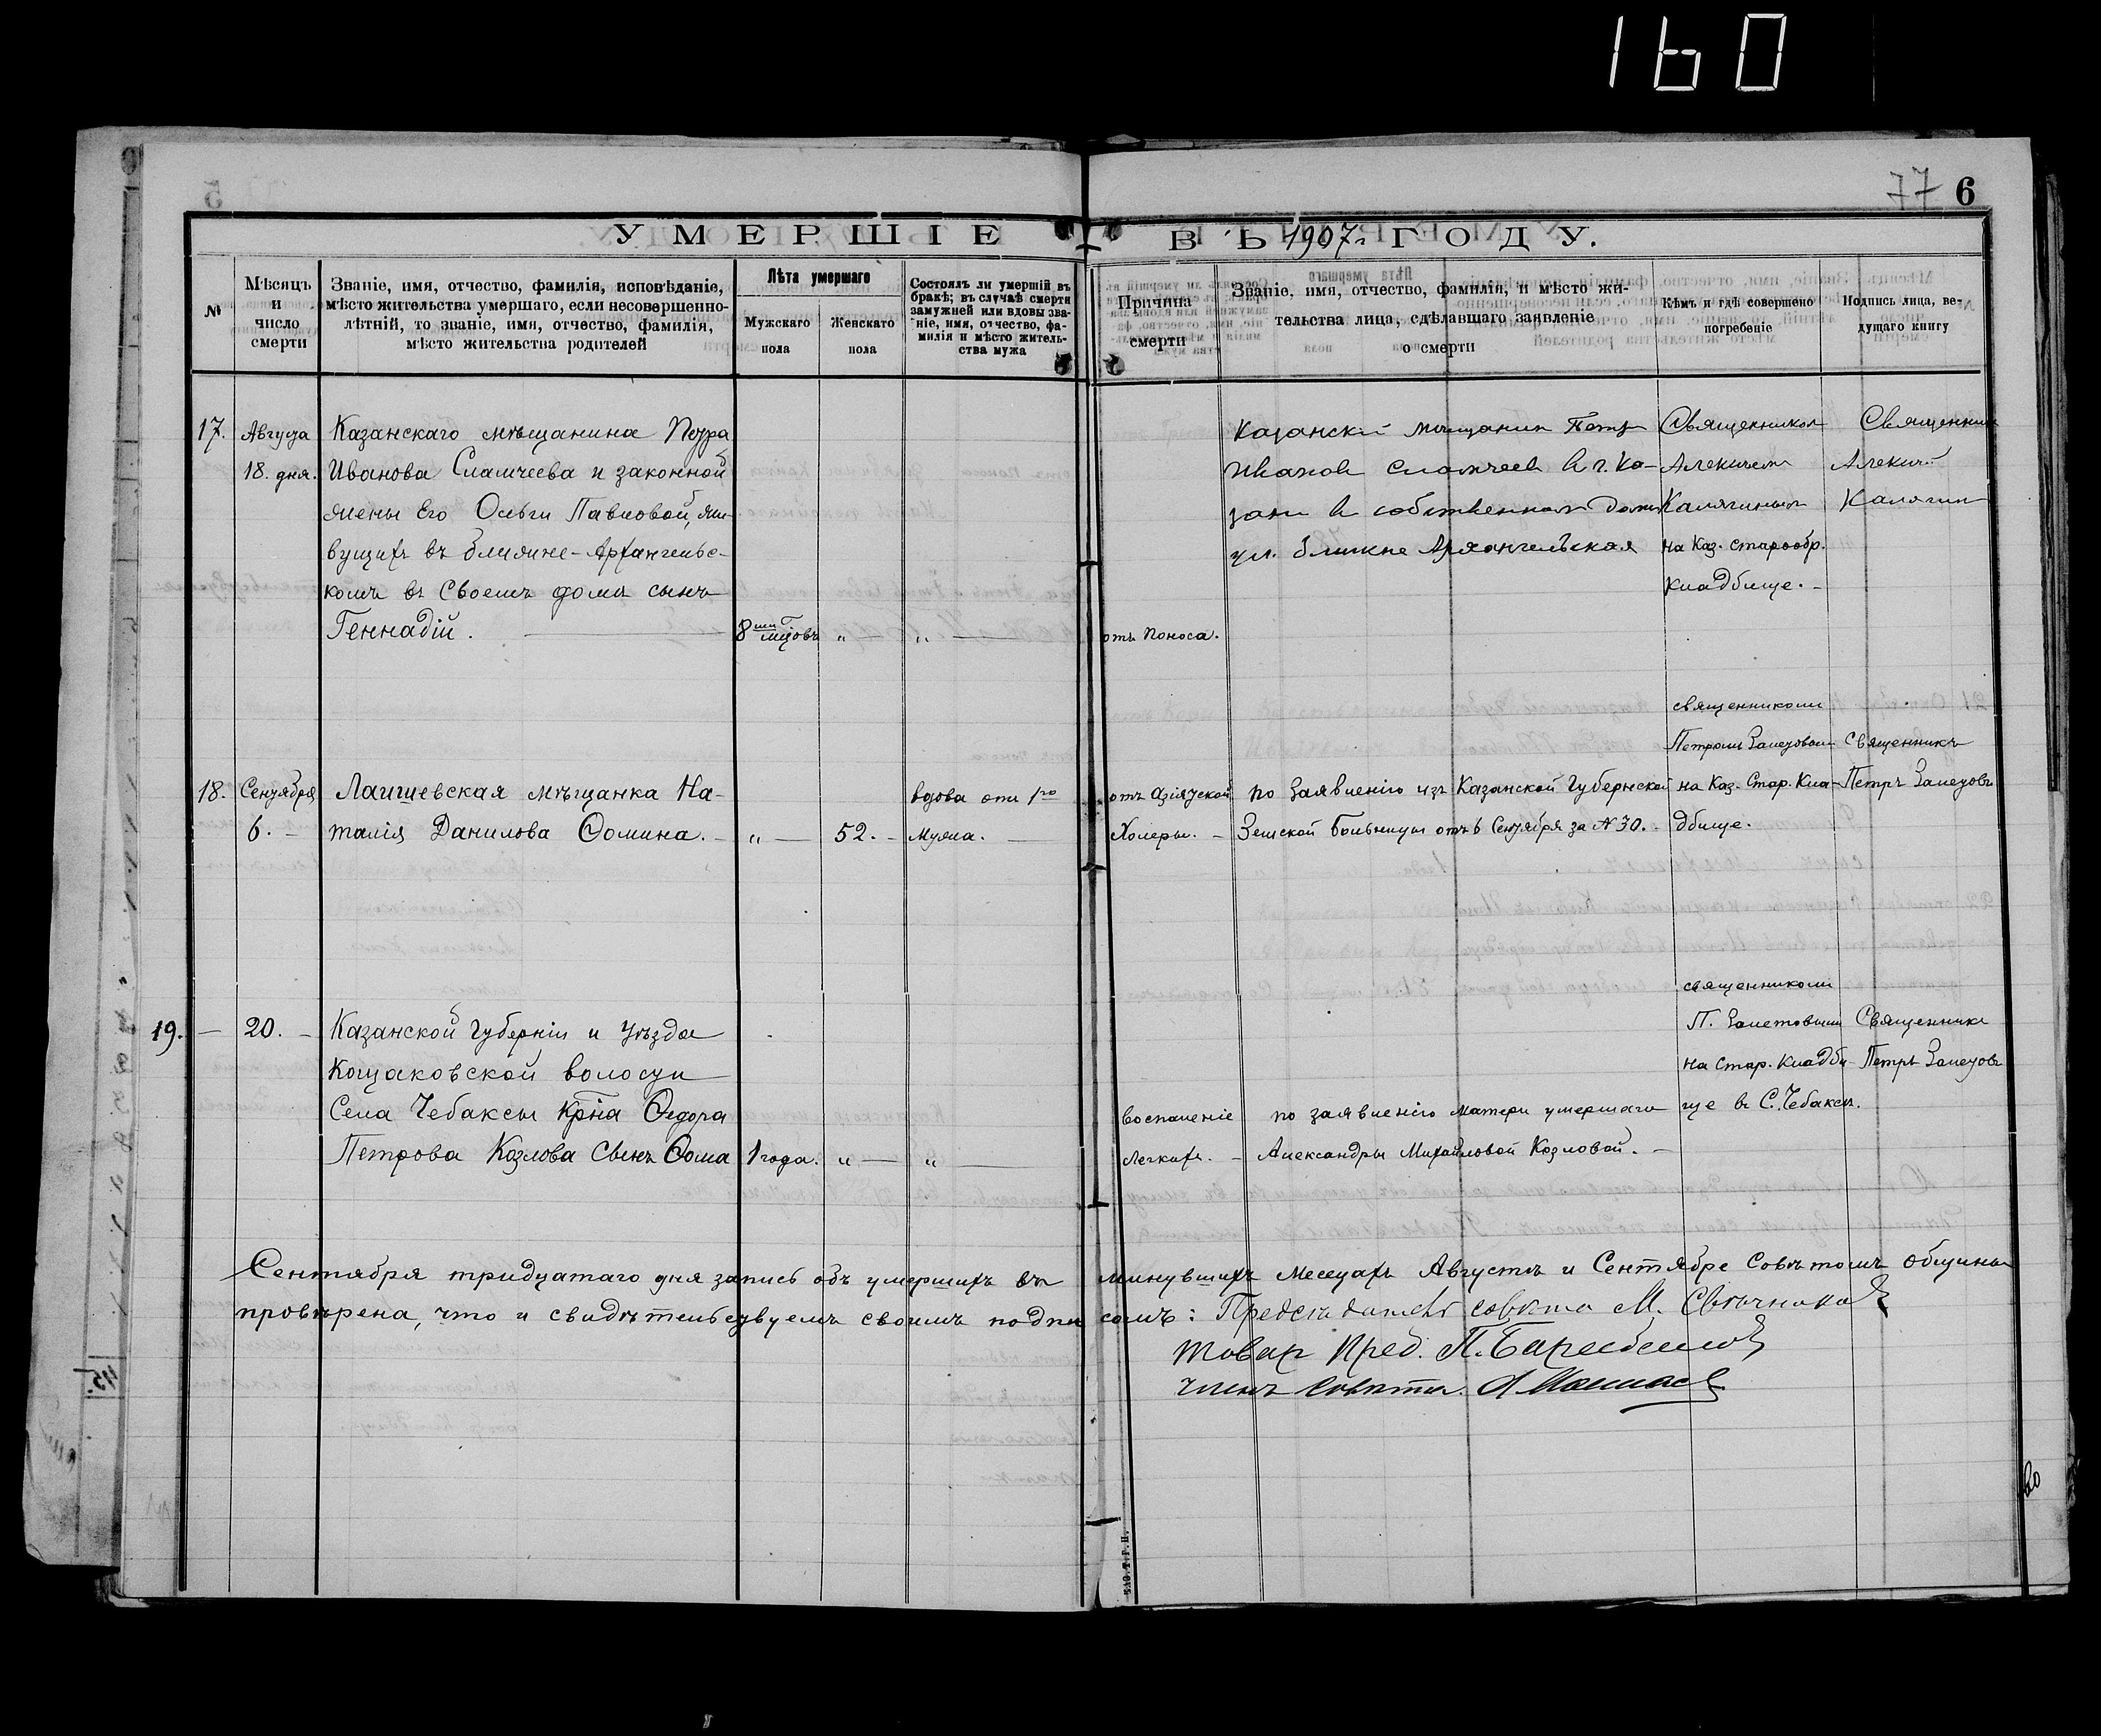 160
77 6
УМЕРШІЕ ВЪ 1907 г. ГОДУ.
№
Мѣсяцъ
и
число
смерти
Званіе, имя, отчество, фамилія, исповѣданіе,
мѣсто жительства умершаго, если несовершенно-
лѣтній, то званіе, имя, отчество, фамилія,
мѣсто жительства родителей
Лѣта умершаго
Мужскаго
пола
Женскаго
пола
Состоялъ ли умершій въ
бракѣ; въ случаѣ смерти
замужней или вдовы зва-
ніе, имя, отчество, фа-
милія и мѣсто житель-
ства мужа
Причина
смерти
Званіе, имя, отчество, фамилія, и мѣсто жи-
тельства лица, сдѣлавшаго заявленіе
о смерти
Кѣмъ и гдѣ совершено
погребеніе
Подпись лица, ве-
дущаго книгу
17.
Августа
18. дня.
Казанскаго мѣщанина Петра
Иванова Сламчеева и законной
жены Его Ольги Павловой, жи-
вущихъ въ ближне-Архангельс-
комъ въ Своемъ домѣ сынъ
Геннадій.
8ми мцовъ " "
отъ поноса.
Казанский мещанин Петр
Иванов Сламчеев в г. Ка-
зани в собственном доми
ул. Ближне Архангельская
Священником
Алексием
Калягиным
на Каз. старообр.
кладбище.
Священник
Алексий
Калягин
18.
Сентября
6.
Лаишевская мѣщанка На-
талія Данилова Ѳомина.
" 52.
вдова отъ 1го
мужа.
отъ Азіятской
Холеры.
по Заявленію изъ Казанской Губернской
Земской Больницы отъ 6 Сентября за № 30.
священникомъ
Петромъ Залетовымъ
на Каз. Стар. Кла-
дбище.
Священникъ
Петръ Залетовъ
19.
20.
Казанской Губерніи и Уѣзда
Кощаковской волости
Села Чебаксы Крна Ѳедора
Петрова Козлова Сынъ Ѳома
1 года. " "
воспаленіе
легкихъ.
по заявленію матери умершаго
Александры Михайловой Козловой.
священникомъ
П. Залетовымъ
на Стар. кладби-
ще въ С. Чебаксы.
Священникъ
Петръ Залетовъ
Сентября тридцатаго дня запись объ умершихъ въ минувшихъ месецахъ Августѣ и Сентябре Совѣтомъ общины
провѣрена, что и свидѣтельствуемъ своимъ подписомъ: Председатель совѣта М. Свѣчников
Товар Пред. П.
членъ Совѣта. А